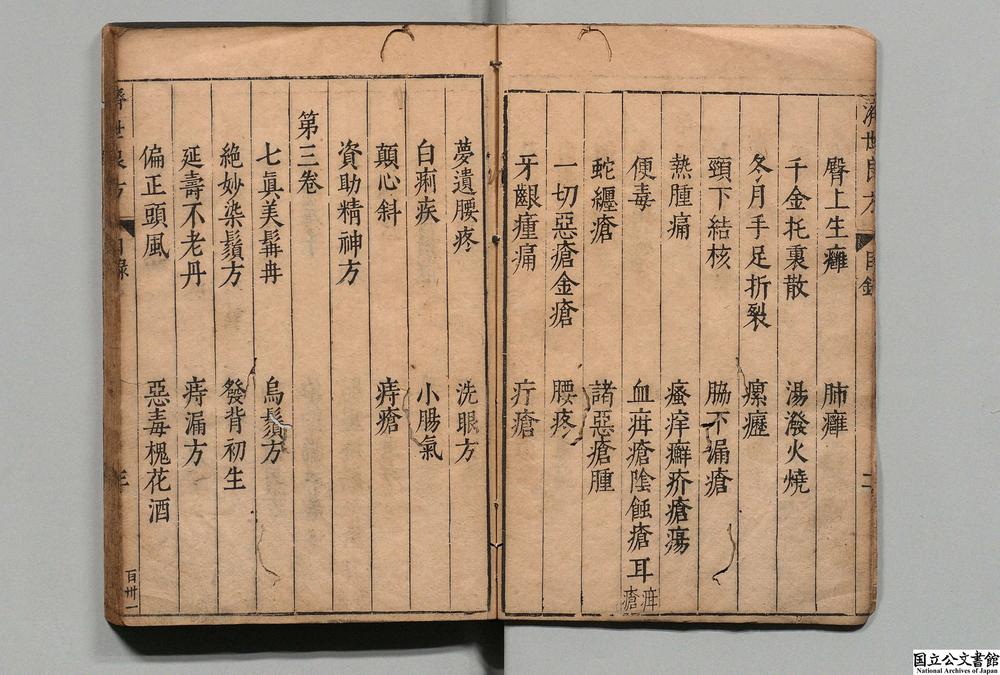 濟世良方 目錄 二
臀上生癰 肺癰
千金托裏散 湯潑火燒
冬月手足折裂 瘰癧
頸下結核 脇不漏瘡
熱腫痛 瘙痒癬疥瘡瘍
便毒 血疳瘡陰蝕瘡耳疳瘡
蛇纏瘡 諸惡瘡腫
一切惡瘡金瘡 腰疼
牙齦瘇痛 疔瘡
夢遺腰疼 洗眼方
白痢疾 小腸氣
顛心斜 痔瘡
資助精神方
第三卷
七眞美髯冉 烏鬚方
絶妙染鬚方 發背初生
延壽不老丹 痔漏方
偏正頭風 惡毒槐花酒
濟世良方 目錄 三
百卅一
国立公文書館
National Archives of Japan